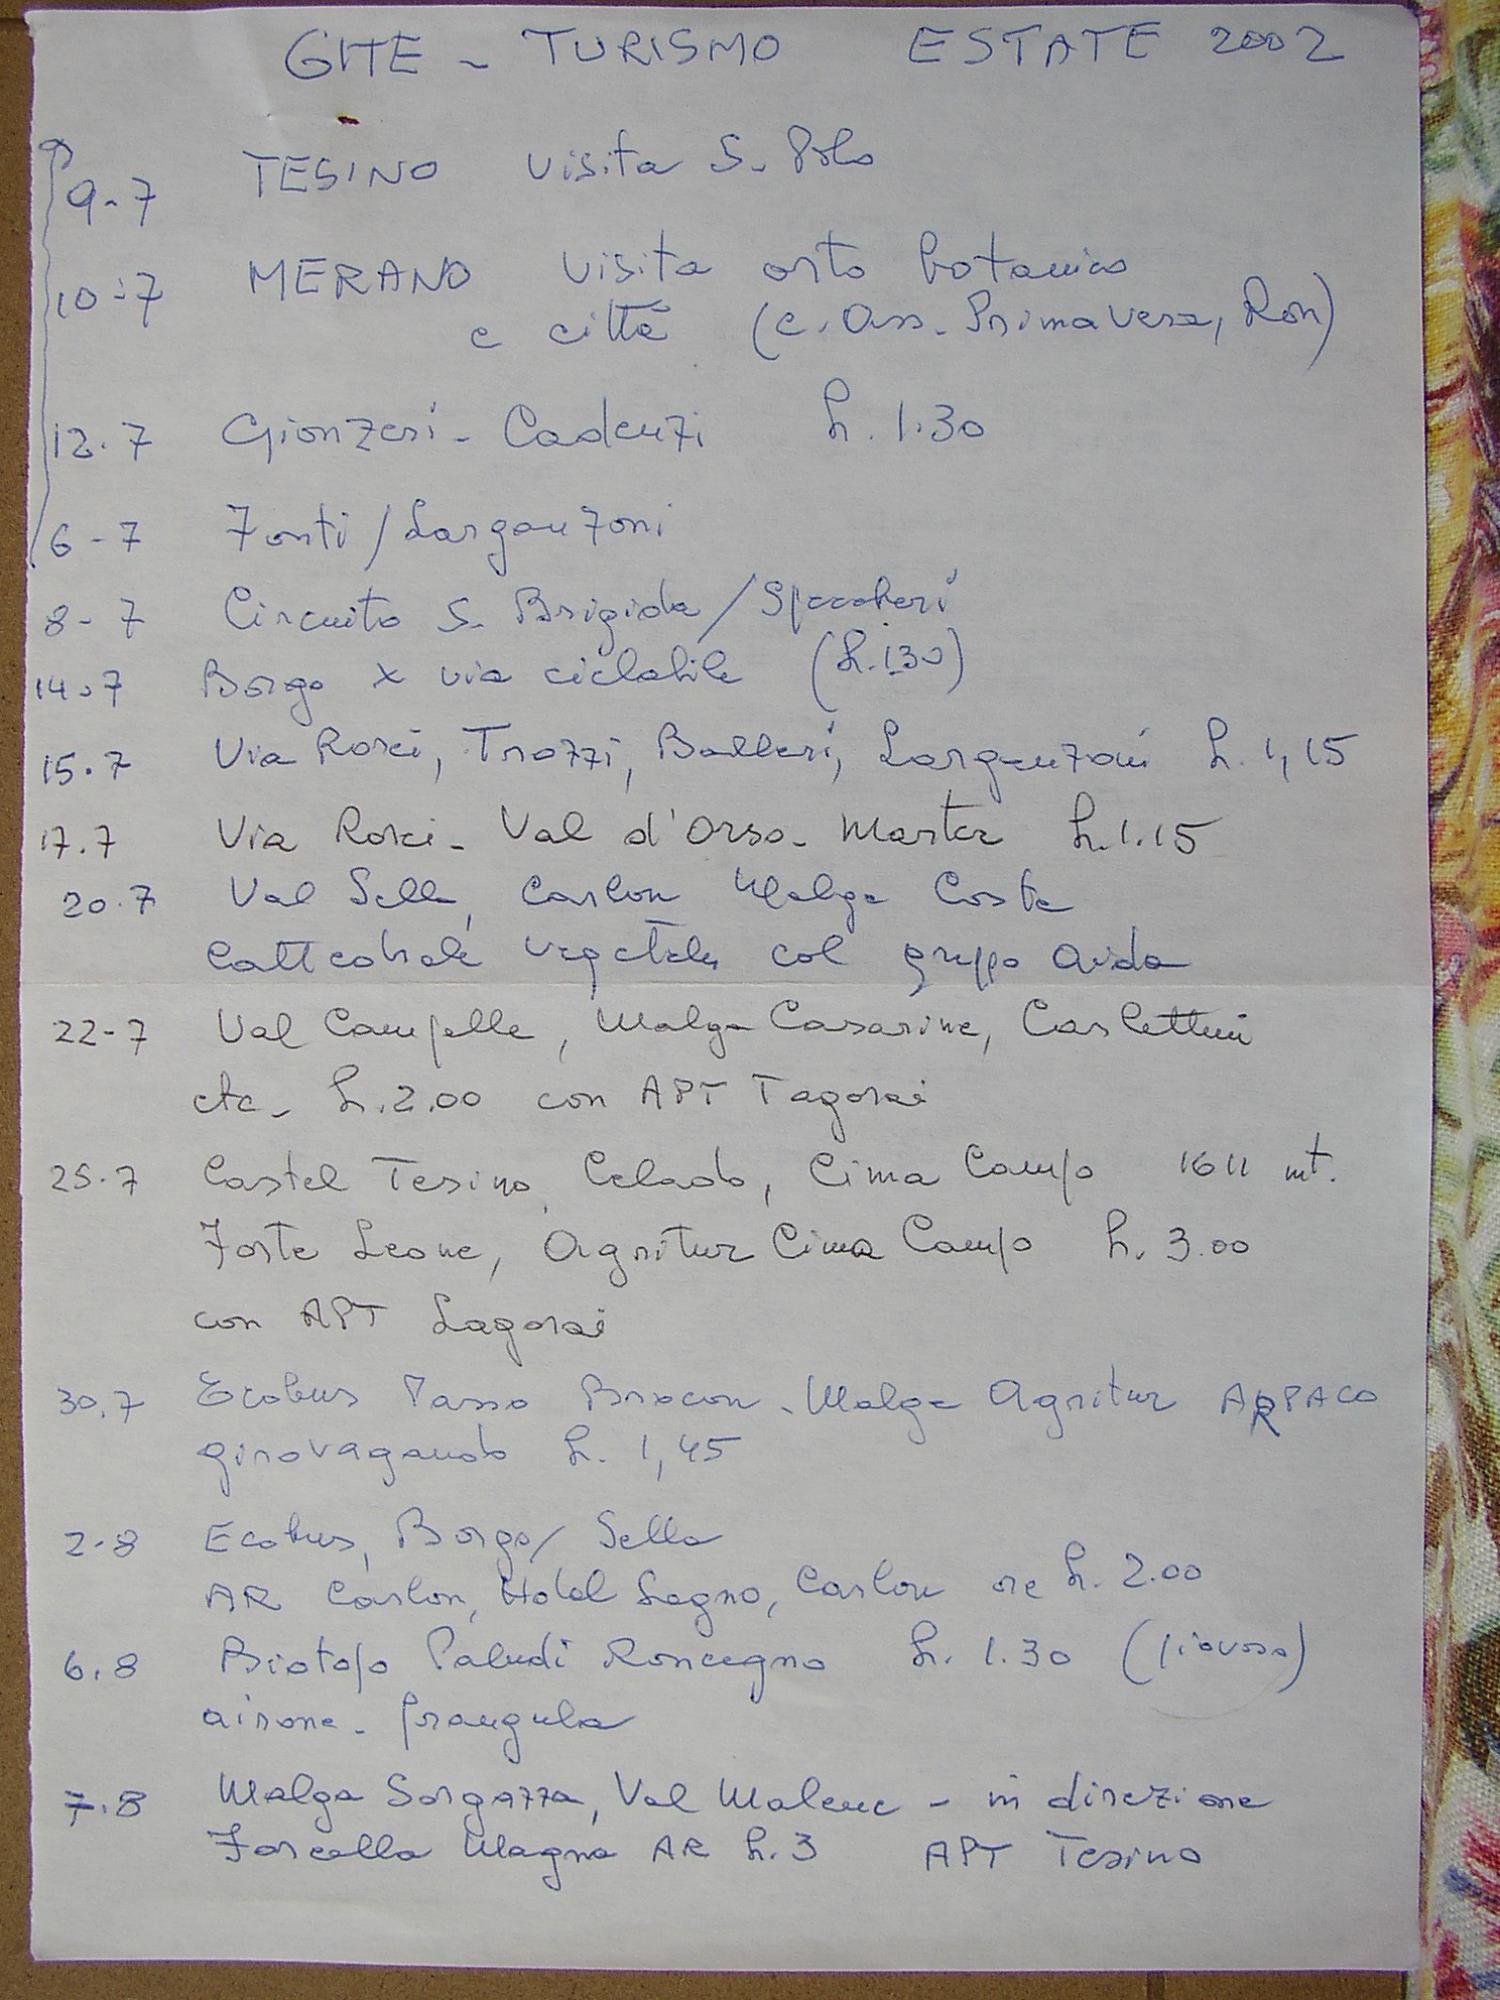 GITE - TURISMO ESTATE 2002
9-7 TESINO visita S. Polo
10-7 MERANO visita orto botanico
e città (c. Ass. Primavera, Ron)
12.7 Gionzeri - Cadenzi h. 1.30
6-7 Fonti / Larganzoni
8-7 Circuito S. Brigida /
14.7 Borgo x via ciclabile (h. 1.30)
15.7 Via Rori, Trozzi, Balleri, Larganzoni h. 1,15
17.7 Via Rori - Val d'Orso - Marter h. 1.15
20.7 Val Sella, Carlon Malga Costa
Cattedrale vegetale col gruppo Aida
22-7 Val Campelle, Malga Casarine, Carlettini
etc - h. 2.00 con APT Lagorai
25.7 Castel Tesino, Celado, Cima Campo 1611 mt.
Forte Leone, Agritur Cima Campo h. 3.00
con APT Lagorai
30.7 Ecobus Passo Brocon - Malga Agritur ARPACO
girovagando h. 1,45
2-8 Ecobus, Borgo / Sella
AR Carlon, Hotel Legno, Carlon ore h. 2.00
6.8 Biotopo Paludi Roncegno h. 1.30 (piovoso)
airone - frangula
7.8 Malga Sorgazza, Val Malene - in direzione
Forcella Magna AR h. 3 APT Tesino